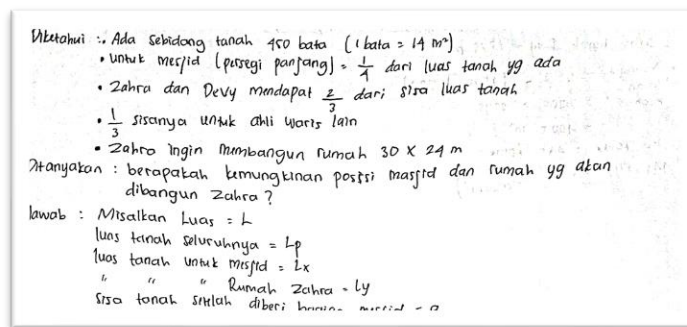 Diketahui : • Ada sebidang tanah 450 bata (1 bata = 14 m²)
• untuk mesjid (persegi panjang) = 1/4 dari luas tanah yg ada
• Zahra dan Devy mendapat 2/3 dari sisa luas tanah
• 1/3 sisanya untuk ahli waris lain
• Zahra ingin membangun rumah 30 x 24 m
Ditanyakan : berapakah kemungkinan posisi masjid dan rumah yg akan
dibangun Zahra ?
Jawab : Misalkan Luas = L
luas tanah seluruhnya = Lp
luas tanah untuk mesjid = Lx
" " " Rumah Zahra = Ly
Sisa tanah setelah diberi